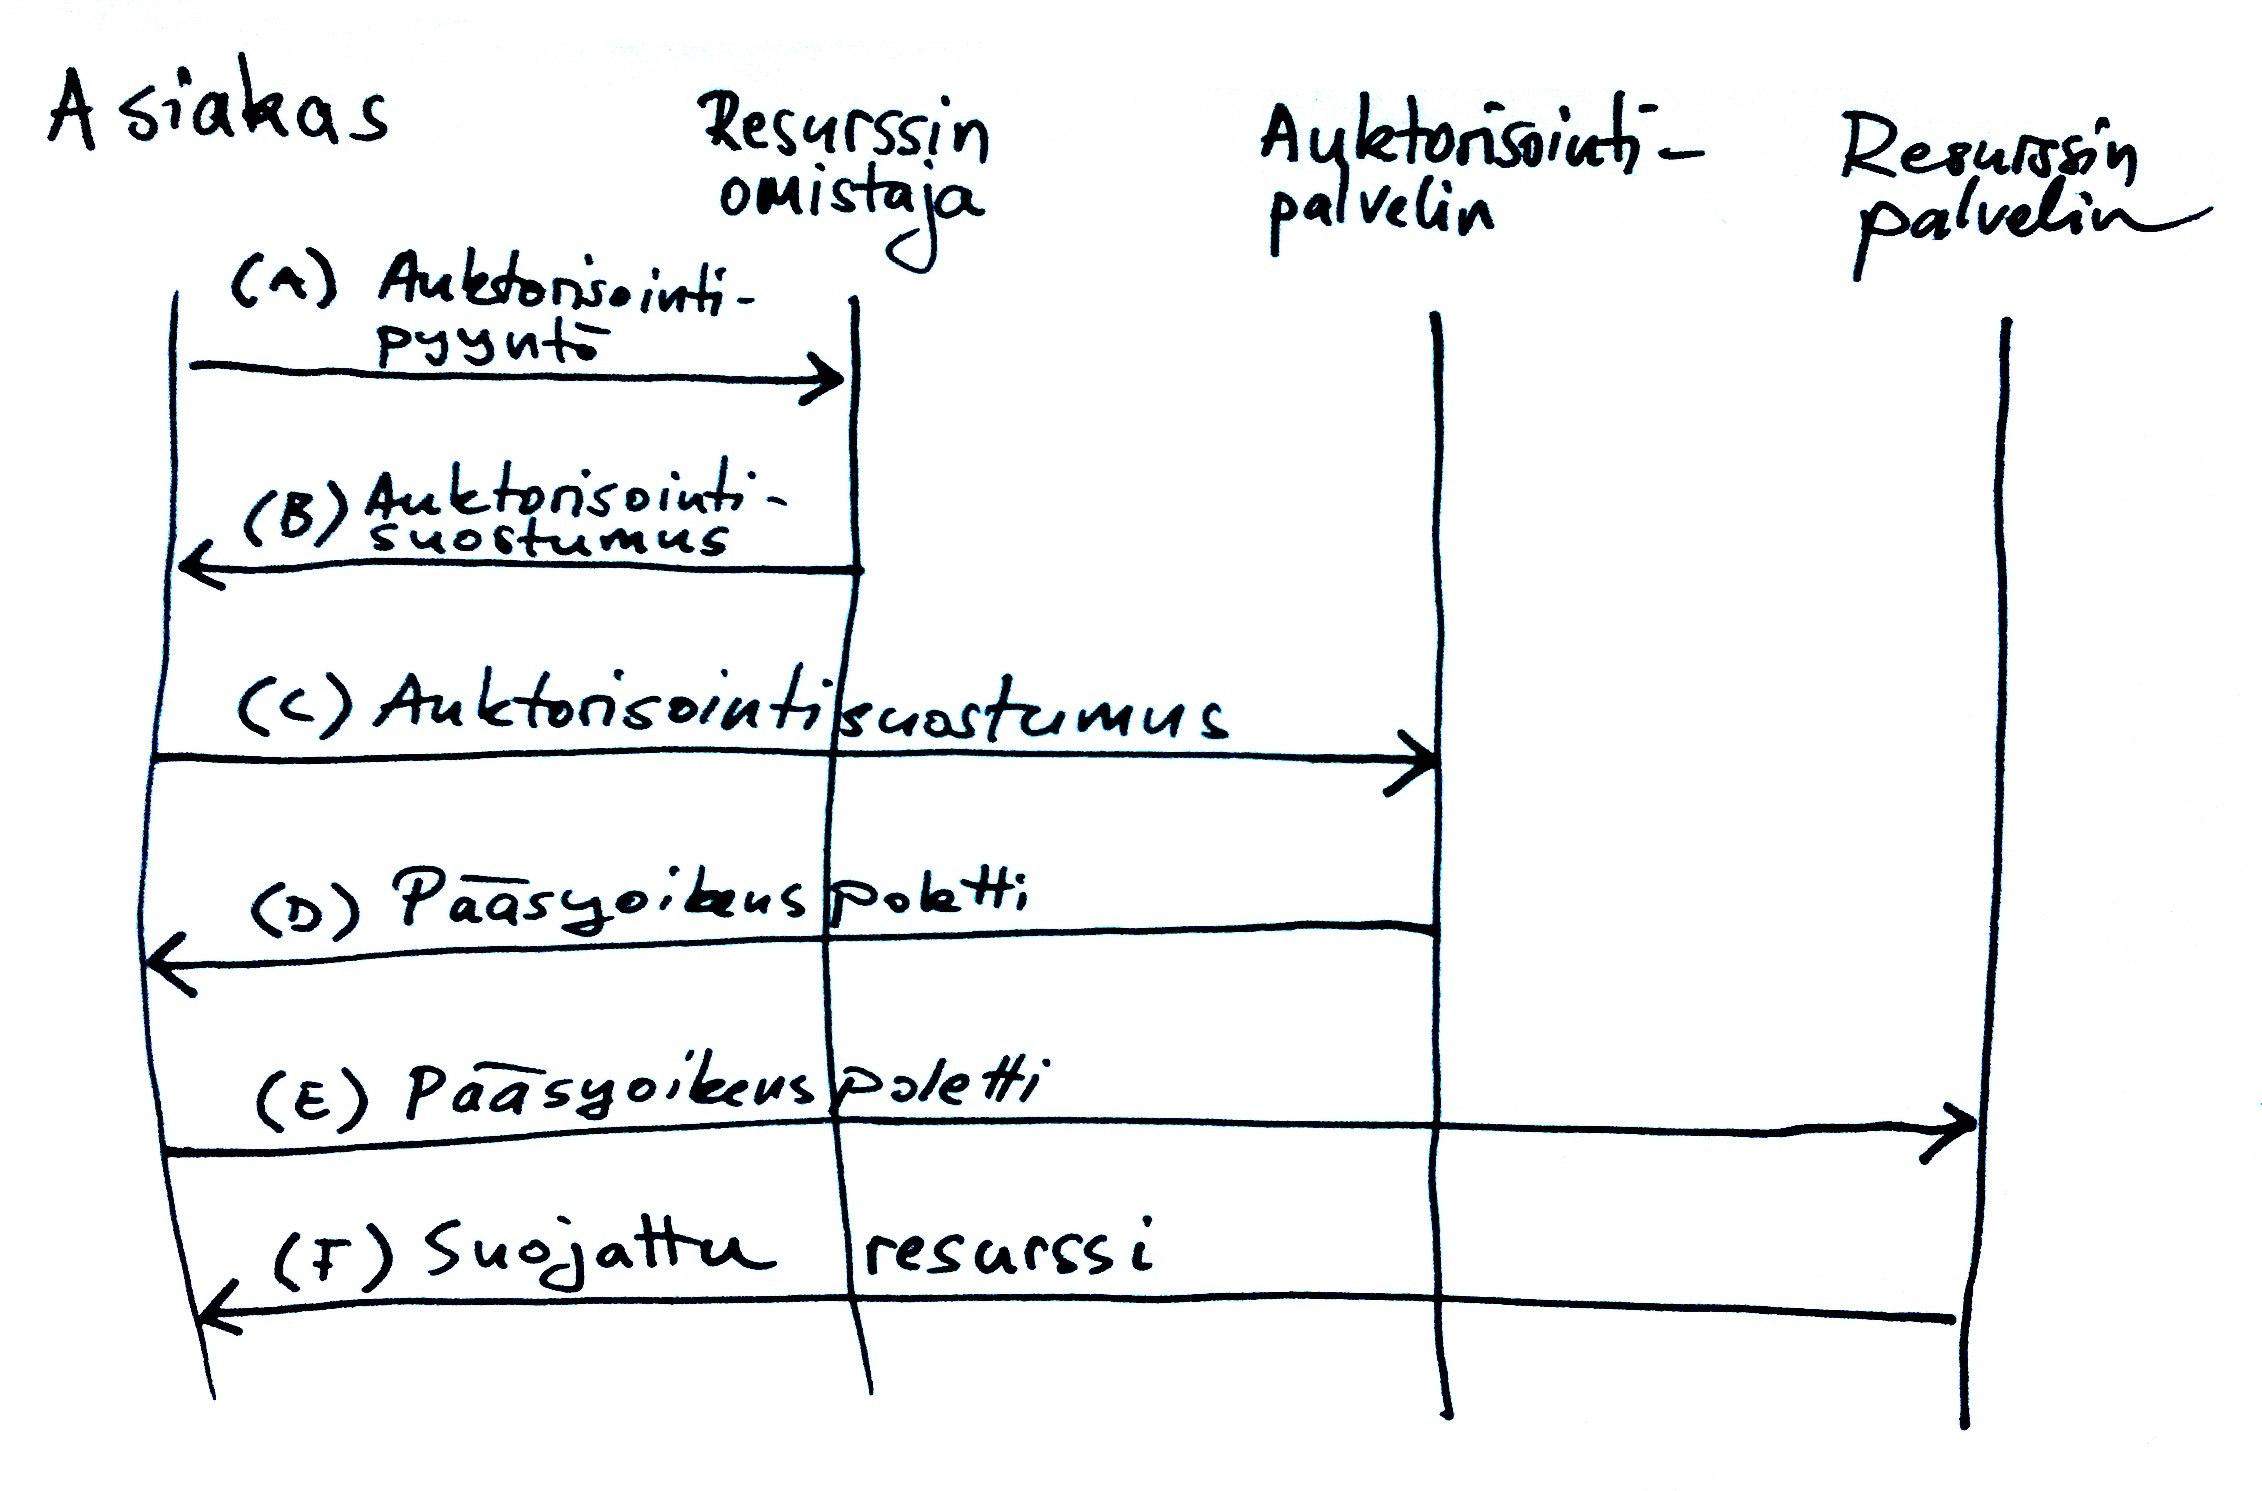 Asiakas
Resurssin
omistaja
Auktorisointi-
palvelin
Resurssin
palvelin
(A) Auktorisointi-
pyyntö
(B) Auktorisointi-
suostumus
(C) Auktorisointisuostumus
(D) Pääsyoikeuspoletti
(E) Pääsyoikeuspoletti
(F) Suojattu resurssi